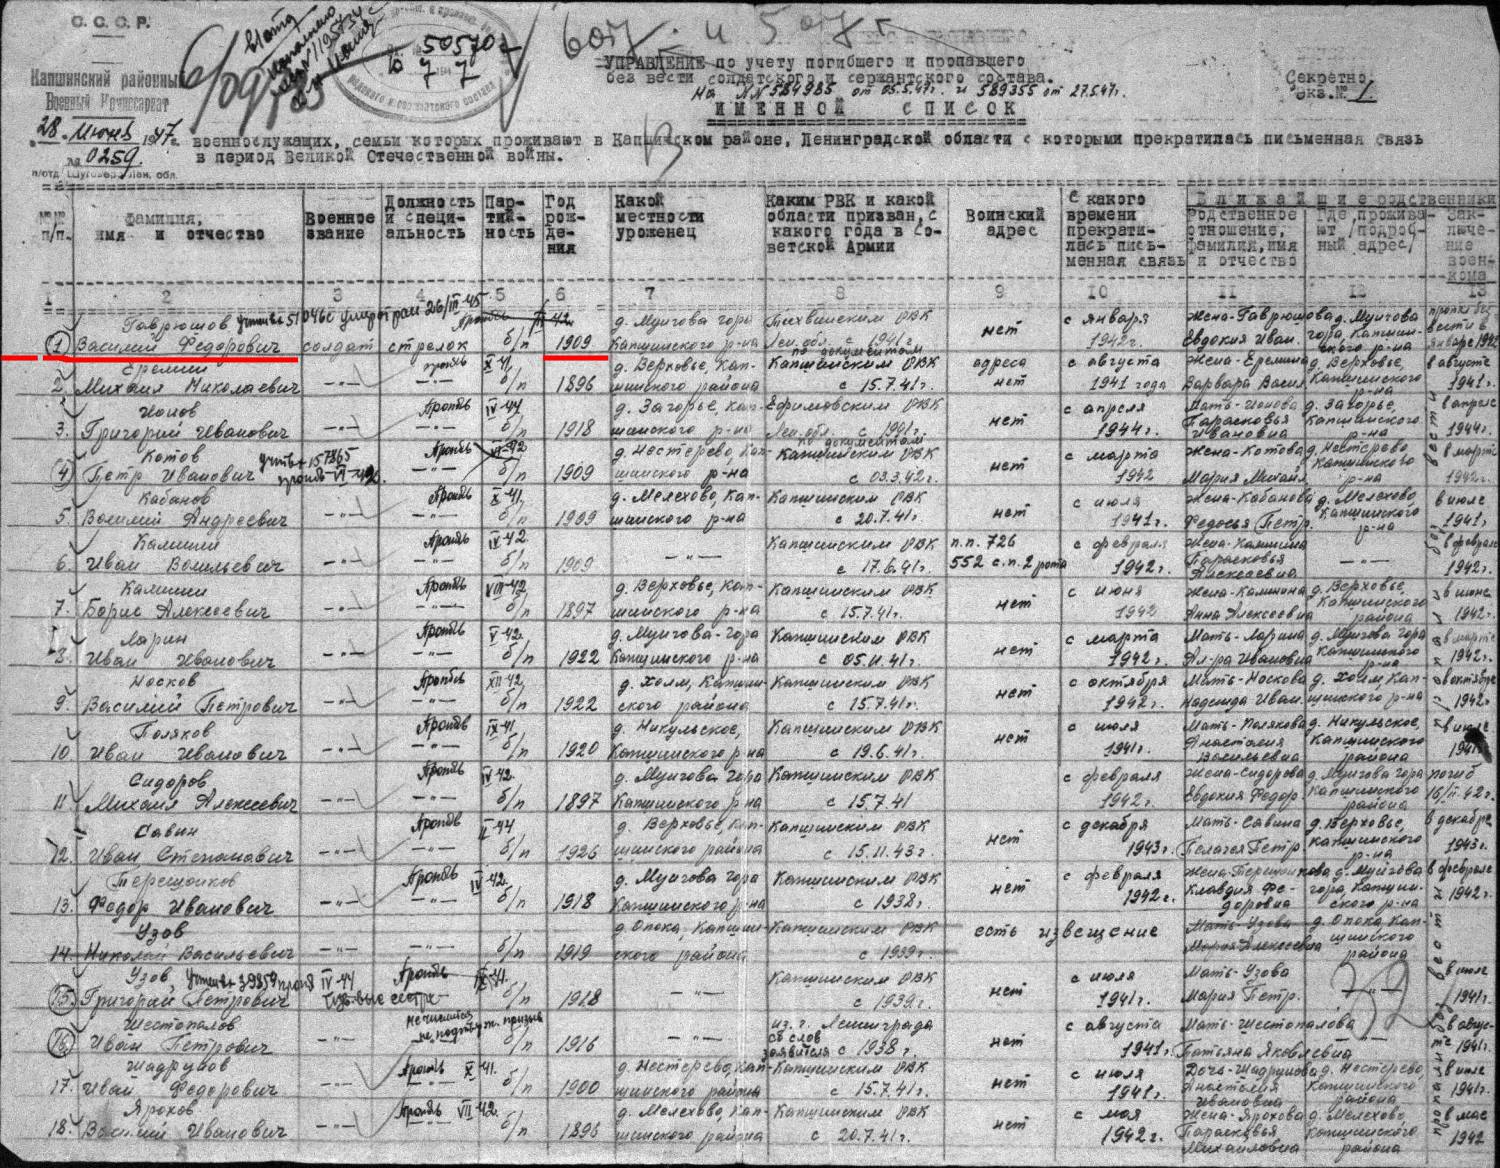 С.С.С.Р.
Капшинский районный
Военный Комиссариат
28 Июня 1947 г.
№ 0259.
п/отд Шугозеро, Лен. обл.
50570
7 7
УПРАВЛЕНИЕ по учету погибшего и пропавшего
без вести солдатского и сержантского состава.
На №№ 584985 от 05.5.47г. и 589355 от 27.5.47г.
Секретно
Экз. № 1
ИМЕННОЙ СПИСОК
военнослужащих, семьи которых проживают в Капшинском районе, Ленинградской области с которыми прекратилась письменная связь
в период Великой Отечественной войны.
№№ п/п. фамилия, имя и отчество Военное звание Должность и специальность Партийность Год рождения Какой местности уроженец Каким РВК и какой области призван, с какого года в Советской Армии Воинский адрес С какого времени прекратилась письменная связь Ближайшие родственники
Родственное отношение, фамилия, имя и отчество Где проживают /подробный адрес/ Заключение военкома
1 2 3 4 5 6 7 8 9 10 11 12 13
1 Гаврюшов Василий Федорович солдат стрелок б/п 1909 д. Муигова гора Капшинского р-на Тихвинским РВК Лен. обл. с 1941г. нет с января 1942г. Жена-Гаврюшова Евдокия Иван. д. Муигова гора, Капшинского р-на пропал без вести в январе 1942
2. Еремин Михаил Николаевич -"- -"- б/п 1896 д. Верховье, Капшинского района Капшинским РВК с 15.7.41г. адреса нет с августа 1941 года Жена-Еремина Варвара Васил. д. Верховье, Капшинского р-на в августе 1941г.
3. Ионов Григорий Иванович -"- -"- б/п 1918 д. Загорье, Капшинского р-на Ефимовским РВК Лен. обл. с 1941г. нет с апреля 1944г. Мать-Ионова Парасковья Ивановна д. Загорье, Капшинского р-на в апреле 1944г.
4 Котов Петр Иванович -"- -"- б/п 1909 д. Нестерово, Капшинского р-на по документам Капшинским РВК с 03.3.42г. нет с марта 1942 Жена-Котова Мария Михайл. д. Нестерово, Капшинского р-на в марте 1942г.
5. Кабанов Василий Андреевич -"- -"- б/п 1909 д. Мелехово, Капшинского р-на Капшинским РВК с 20.7.41г. нет с июля 1941г. Жена-Кабанова Федосья Петр. д. Мелехово Капшинского р-на в июле 1941г.
6. Калинин Иван Васильевич -"- -"- б/п 1909 -"- Капшинским РВК с 17.6.41г. п.п. 726 552 с.п. 2 рота с февраля 1942г. Жена-Калинина Парасковья Алексеевна -"- в феврале 1942г.
7. Калинин Борис Алексеевич -"- -"- б/п 1897 д. Верховье, Капшинского р-на Капшинским РВК с 15.7.41г. нет с июня 1942 Жена-Калинина Анна Алексеевна д. Верховье, Капшинского района в июне 1942г.
8. Ларин Иван Иванович -"- -"- б/п 1922 д. Муигова-гора Капшинского р-на Капшинским РВК с 05.11.41г. нет с марта 1942г. Мать-Ларина Ал-ра Ивановна д. Муигова гора Капшинского р-на в марте 1942г.
9. Носков Василий Петрович -"- -"- б/п 1922 д. Холм, Капшинского района Капшинским РВК с 15.7.41г. нет с октября 1942г. Мать-Носкова Надежда Иван. д. Холм, Капшинского р-на в октябре 1942г.
10. Поляков Иван Иванович -"- -"- б/п 1920 д. Никульское, Капшинского р-на Капшинским РВК с 19.6.41г. нет с июля 1941г. Мать-Полякова Анастасия Васильевна д. Никульское, Капшинского района в июле 1941г.
11. Сидоров Михаил Алексеевич -"- -"- б/п 1897 д. Муигова гора Капшинского р-на Капшинским РВК с 15.7.41 с февраля 1942г. Жена-Сидорова Евдокия Федор. д. Муигова гора Капшинского района погиб 16/II.42г.
12. Савин Иван Степанович -"- -"- б/п 1926 д. Верховье, Капшинского района Капшинским РВК с 15.11.43г. нет с декабря 1943г. Мать-Савина Пелагея Петр. д. Верховье, Капшинского р-на в декабре 1943г.
13. Терещенков Федор Иванович -"- -"- б/п 1918 д. Муигова гора Капшинского р-на Капшинским РВК с 1938г. нет с февраля 1942г. Клавдия Федоровна д. Муигова гора, Капшинского р-на в феврале 1942г.
14. Узов Николай Васильевич -"- -"- б/п 1919 д. Опока, Капшинского района Капшинским РВК с 1939г. есть извещение Мать-Узова Мария Алексеевна д. Опока Капшинского района
15. Узов Григорий Петрович -"- б/п 1918 -"- Капшинским РВК с 1939г. нет с июля 1941г. Мать-Узова Мария Петр. -"- в июле 1941г.
16. Шестопалов Иван Петрович -"- -"- б/п 1916 -"- из г. Ленинграда со слов заявителя с 1938г. нет с августа 1941г. Мать-Шестопалова Татьяна Яковлевна 1941г.
17. Шадрунов Иван Федорович -"- -"- б/п 1900 д. Нестерово, Капшинского района Капшинским РВК с 15.7.41г. нет с июля 1941г. Дочь-Шадрунова Анастасия Ивановна д. Нестерово, Капшинского района в июле 1941г.
18. Ярохов Василий Иванович -"- -"- б/п 1896 д. Мелехово, Капшинского района Капшинским РВК с 20.7.41г. нет с мая 1942г. Жена-Ярохова Парасковья Михайловна д. Мелехово, Капшинского района в мае 1942